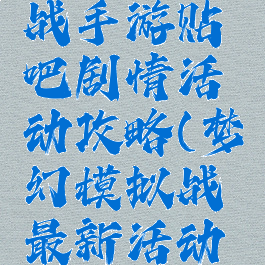 战手游贴
吧剧情活
动攻略(梦
幻模拟战
最新活动